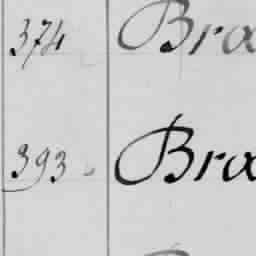 374 Bra
393 Bra